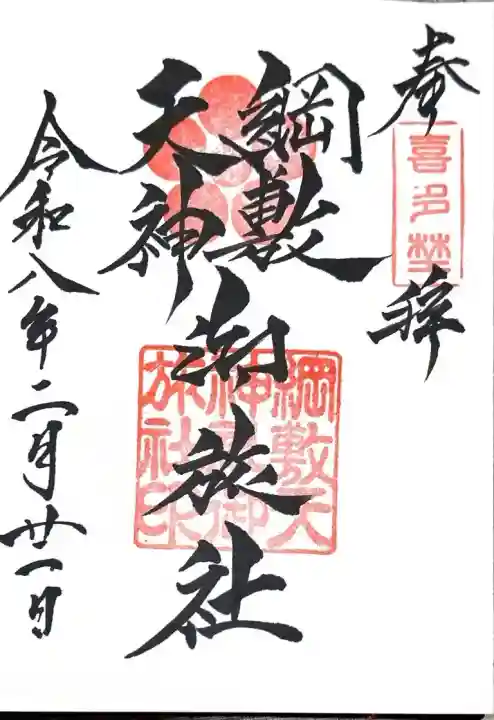 奉拝
喜多埜
綱敷
天神
御旅社
綱敷天
神社御
旅社印
令和八年二月廿一日